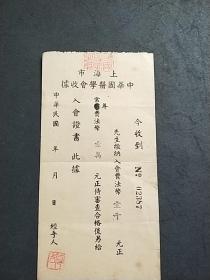 上海市
中華國醫學會收據
今收到
№ 02387
先生繳納入會費法幣壹千元正
常年費法幣壹萬元正待審查合格後另給
入會證書此據
中華民國 年 月 日 經手人